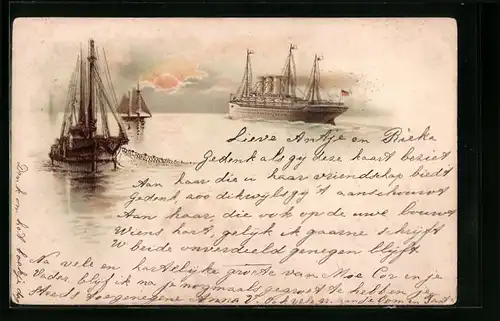 Lieve Antje en Rieke
Gedenk als gij deze kaart beziet
Aan haar die u haar vriendschap biedt
Gedenk, zoo dikwijls gij 't aanschouwt
Aan haar, die ook op de uwe bouwt
Wiens hart, gelijk ik gaarne schrijft
U beide onverdield genegen blijft.
Na vele en hartelijke groete van Moe Cor en je
Vader, blijf ik na je nogmaals gegroet te hebben je
Steeds toegenegene Anna V.
Denk om het